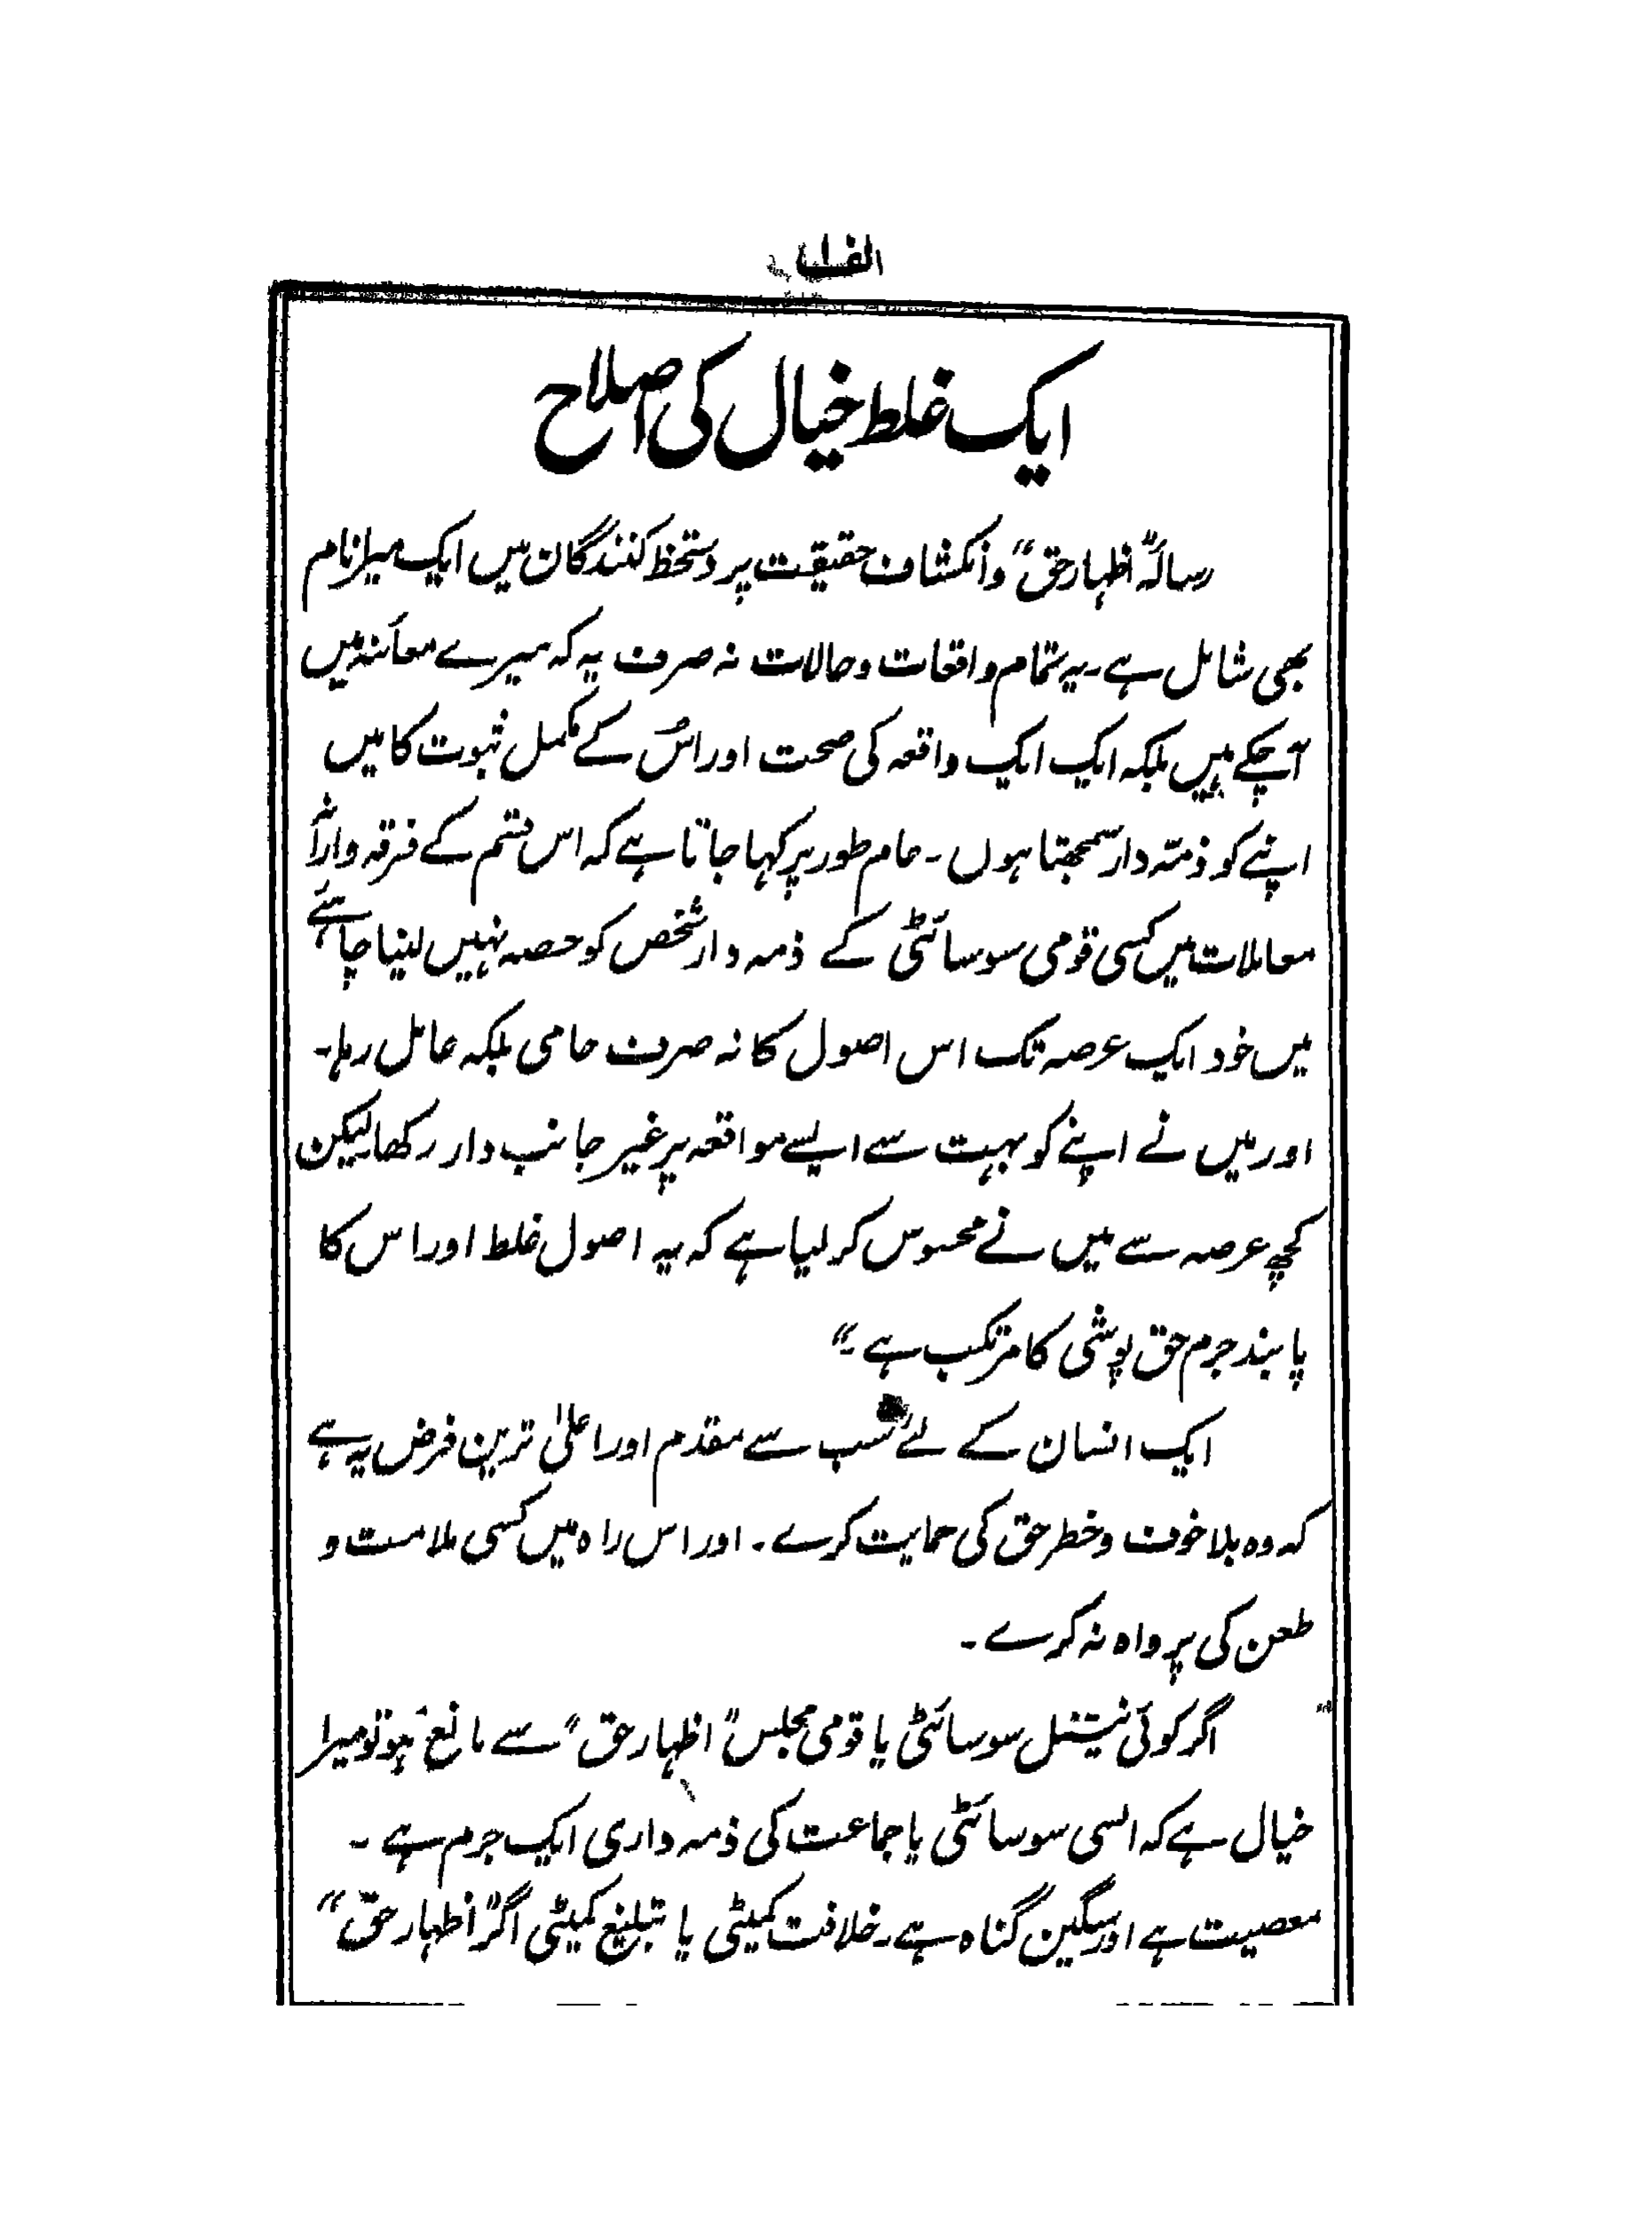 الف
ایک غلط خیال کی اصلاح
رسالہ "اظہار حق" و انکشاف حقیقت پر دستخط کنندگان میں ایک میرا نام
بھی شامل ہے۔ یہ تمام واقعات و حالات نہ صرف یہ کہ میرے معائنہ میں
آچکے ہیں بلکہ ایک ایک واقعہ کی صحت اور اُس کے مکمل ثبوت کا میں
اپنے کو ذمّہ دار سمجھتا ہوں۔ عام طور پر کہا جاتا ہے کہ اس قسم کے فرقہ وارانہ
معاملات میں کسی قومی سوسائٹی کے ذمہ دار شخص کو حصہ نہیں لینا چاہئے
میں خود ایک عرصہ تک اس اصول کا نہ صرف حامی بلکہ عامل رہا۔
اور میں نے اپنے کو بہت سے ایسے مواقعہ پر غیر جانب دار رکھا لیکن
کچھ عرصہ سے میں نے محسوس کر لیا ہے کہ یہ اصول غلط اور اس کا
پابند جرم حق پوشی کا مرتکب ہے۔"
ایک انسان کے لئے سب سے مقدم اور اعلیٰ ترین فرض یہ ہے
کہ وہ بلا خوف و خطر حق کی حمایت کرے۔ اور اس راہ میں کسی ملامت و
طعن کی پرواہ نہ کرے۔
اگر کوئی نیشنل سوسائٹی یا قومی مجلس "اظہار حق" سے مانع ہو تو میرا
خیال ہے کہ ایسی سوسائٹی یا جماعت کی ذمہ داری ایک جرم ہے۔
معصیت ہے اور سنگین گناہ ہے۔ خلافت کمیٹی یا تبلیغ کمیٹی اگر "اظہار حق"